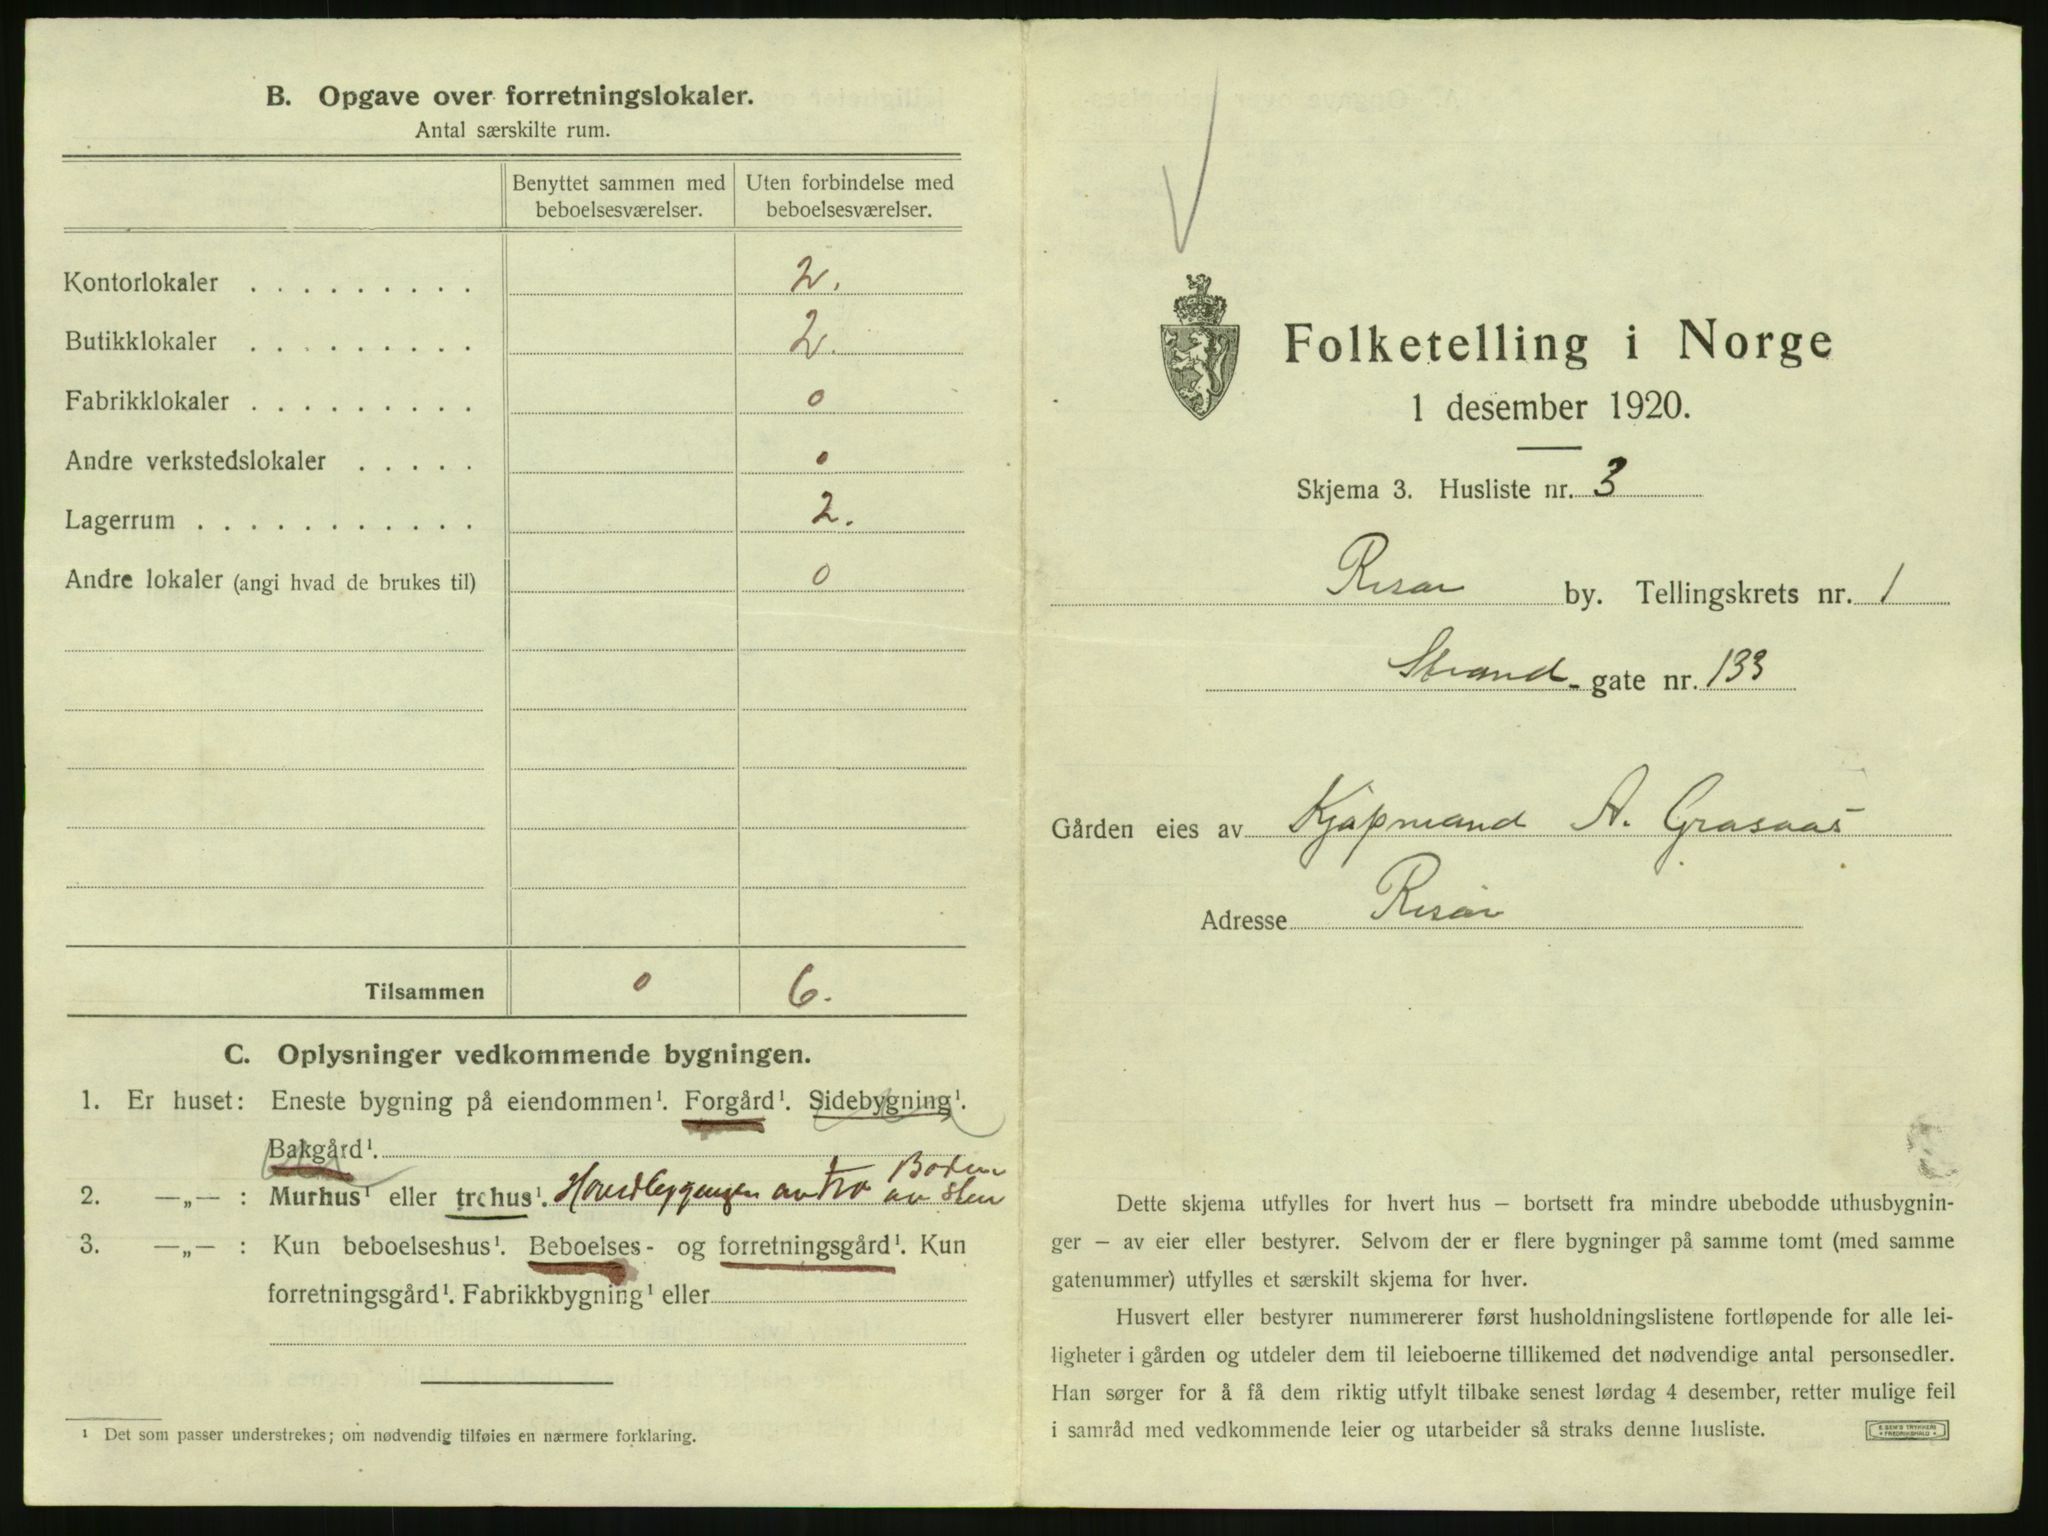 B. Opgave over forretningslokaler.
Antal særskilte rum.
Benyttet sammen med beboelsesværelser.
Uten forbindelse med beboelsesværelser.
Kontorlokaler . . . . . . . . . 2.
Butikklokaler . . . . . . . . . 2.
Fabrikklokaler . . . . . . . . . 0
Andre verkstedslokaler . . . . . 0
Lagerrum . . . . . . . . . . . 2.
Andre lokaler (angi hvad de brukes til) 0
Tilsammen 0 6.
C. Oplysninger vedkommende bygningen.
1. Er huset: Eneste bygning på eiendommen¹. Forgård¹. Sidebygning¹.
Bakgård¹.
2. —„— : Murhus¹ eller trehus¹. Hovedbygningen av træ Boden av sten
3. —„— : Kun beboelseshus¹. Beboelses- og forretningsgård¹. Kun
forretningsgård¹. Fabrikkbygning¹ eller
¹ Det som passer understrekes; om nødvendig tilføies en nærmere forklaring.
Folketelling i Norge
1 desember 1920.
Skjema 3. Husliste nr. 3
Risør by. Tellingskrets nr. 1
Strand- gate nr. 133
Gården eies av Kjøpmand A. Grasaas
Adresse Risør
Dette skjema utfylles for hvert hus – bortsett fra mindre ubebodde uthusbygnin-
ger – av eier eller bestyrer. Selvom der er flere bygninger på samme tomt (med samme
gatenummer) utfylles et særskilt skjema for hver.
Husvert eller bestyrer nummererer først husholdningslistene fortløpende for alle lei-
ligheter i gården og utdeler dem til leieboerne tillikemed det nødvendige antal personsedler.
Han sørger for å få dem riktig utfylt tilbake senest lørdag 4 desember, retter mulige feil
i samråd med vedkommende leier og utarbeider så straks denne husliste.
E. SEM'S TRYKKERI
FREDRIKSHALD